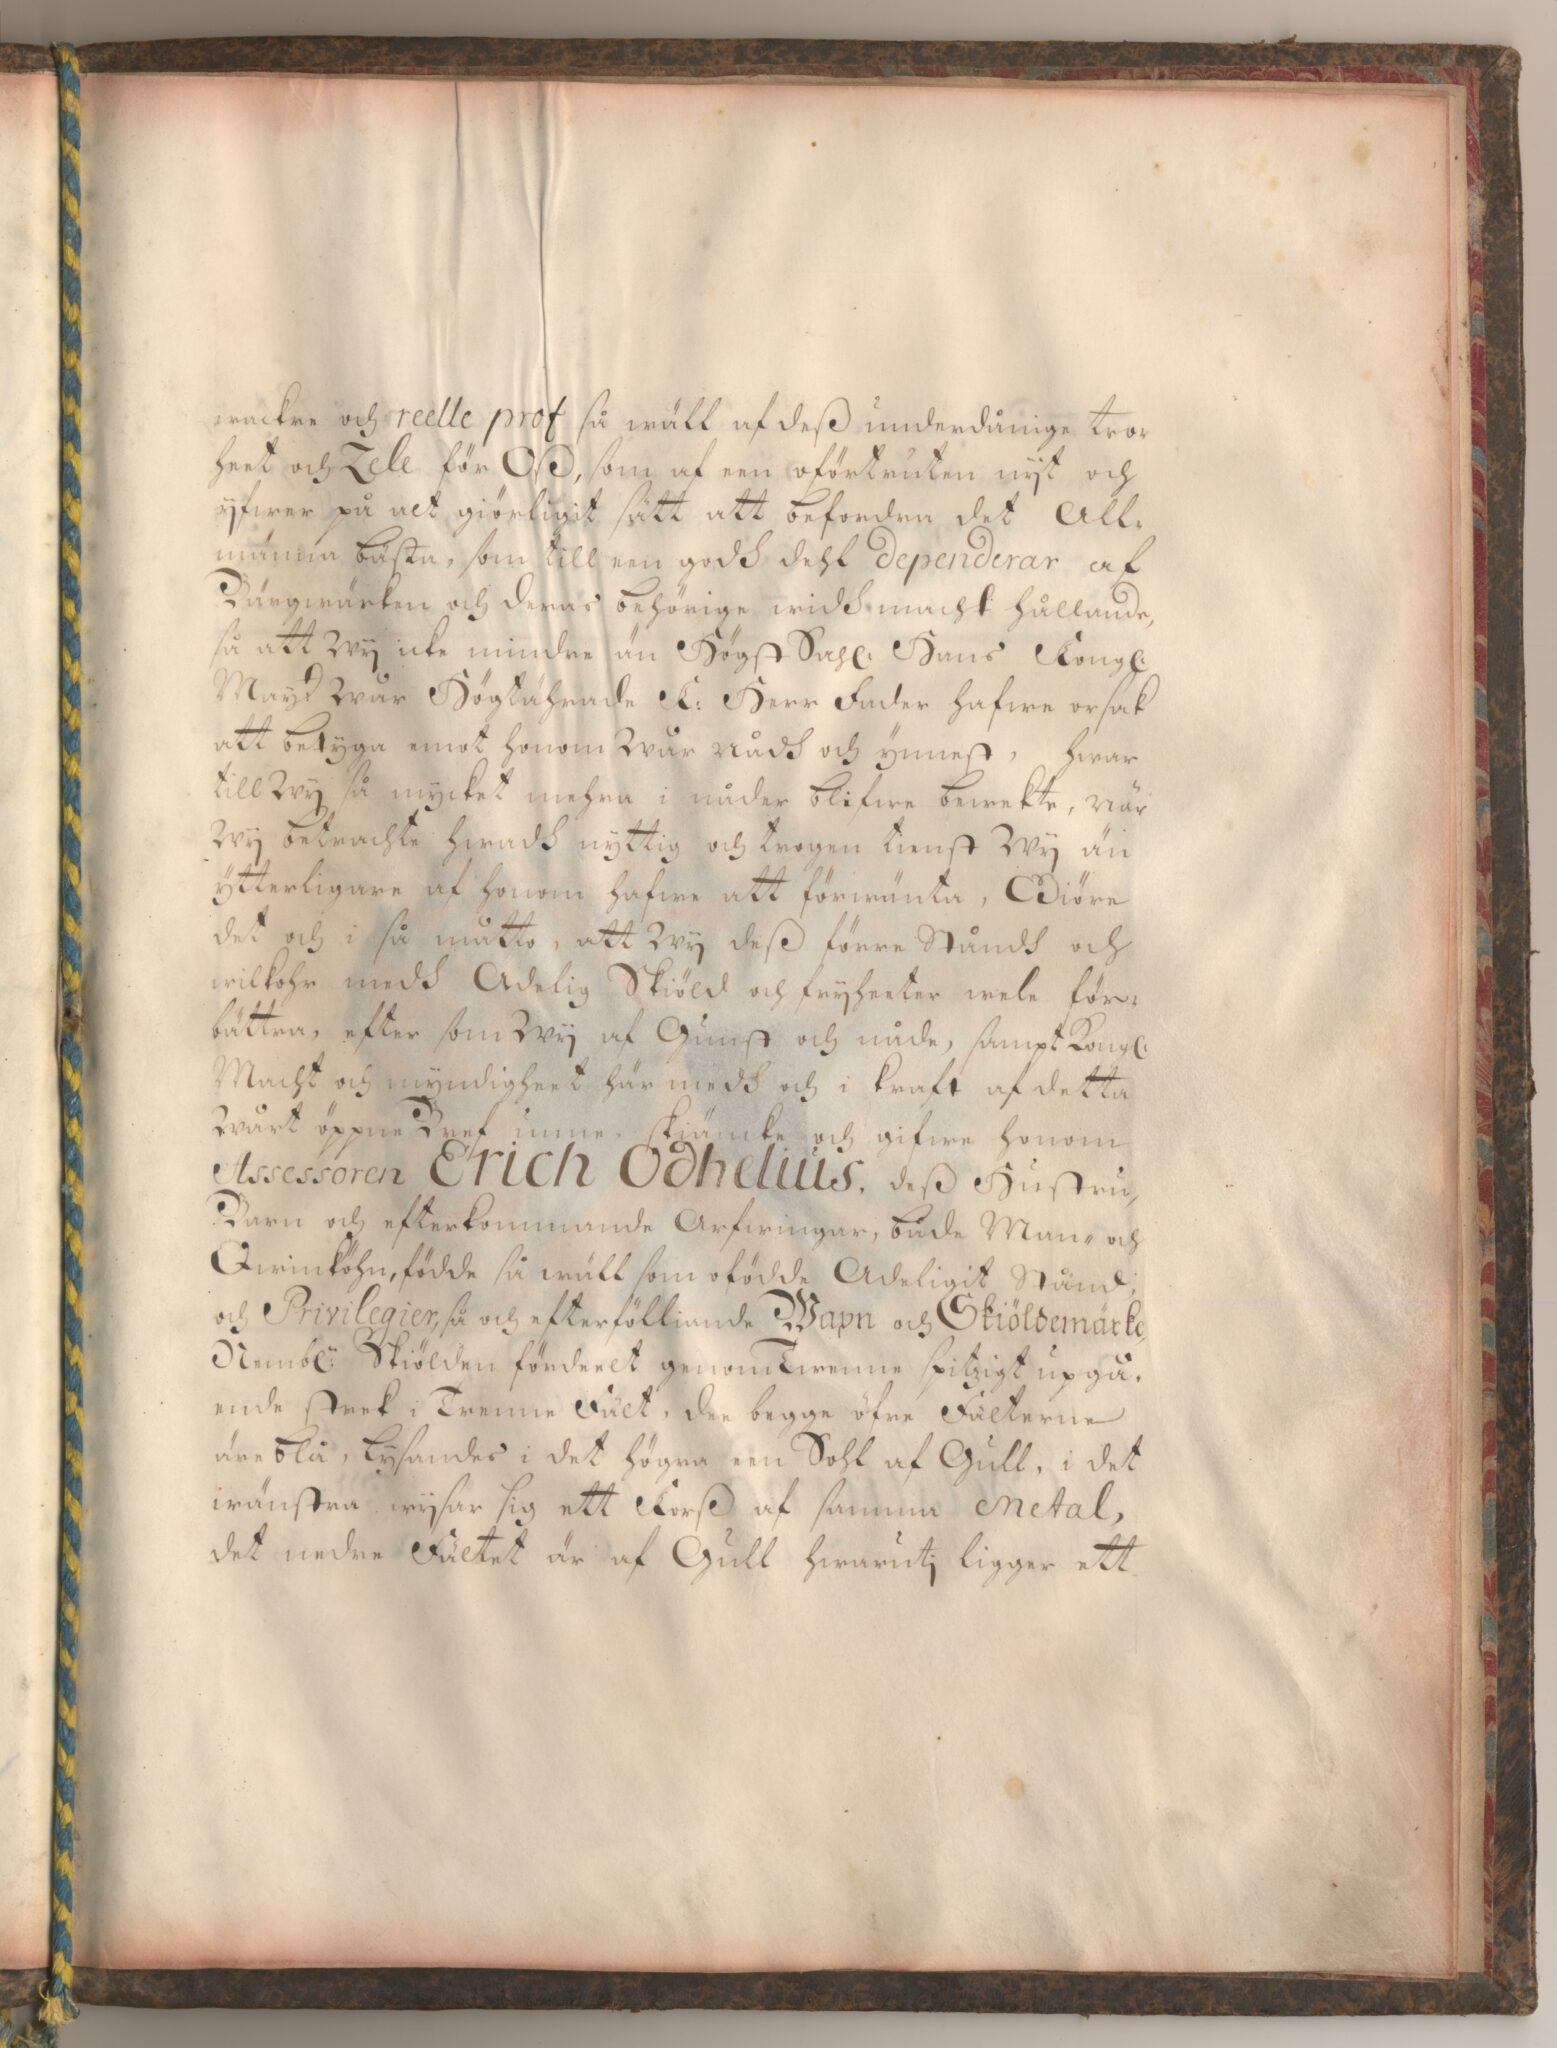 wackre och reelle prof så wäll af deß underdånige tror
heet och Zele för Oß, som af een oförtruten nijt och
yfwer på alt giörligit sätt att befordra det All-
männa bästa, som till een godh dehl dependerar af
Bärgwärken och deras behörige widh macht hållande,
så att Wij icke mindre än Högst Sahl: Hans Kongl:
Mayt Wår Högtährade K: Herr Fader hafwe orsak
att betyga emot honom Wår nådh och ynnest, hwar
till Wij så mycket mehra i nåder blifwe bewekte, när
Wij betrachte hwadh nyttig och trogen tienst Wij än
ytterligare af honom hafwe att förwänta, Giöre
det och i så måtto, att Wij deß förre Ståndh och
wilkohr medh Adelig Skiöld och frijheeter wele för-
bättra, efter som Wij af Gunst och nåde, sampt Kongl:
Macht och myndigheet här medh och i kraft af detta
Wårt öppne Bref unne, skiäncke och gifwe honom
Assessoren Erich Odhelius, deß Hustru,
Barn och efterkommande Arfwingar, både Man- och
Qwinköhn, födde så wäll som ofödde Adeligit Stånd,
och Privilegier, så och efterfölliande Wapn och Skiöldemärke,
Nembl: Skiölden fördeelt genom Twenne spitzigt upgå-
ende strek i Trenne Fält, dee begge öfre Fälterne
äre blå, lysandes i det högra een Sohl af Gull, i det
wänstra wijsar sig ett Korß af samma Metal,
det nedre Fältet är af Gull hwarutj ligger ett